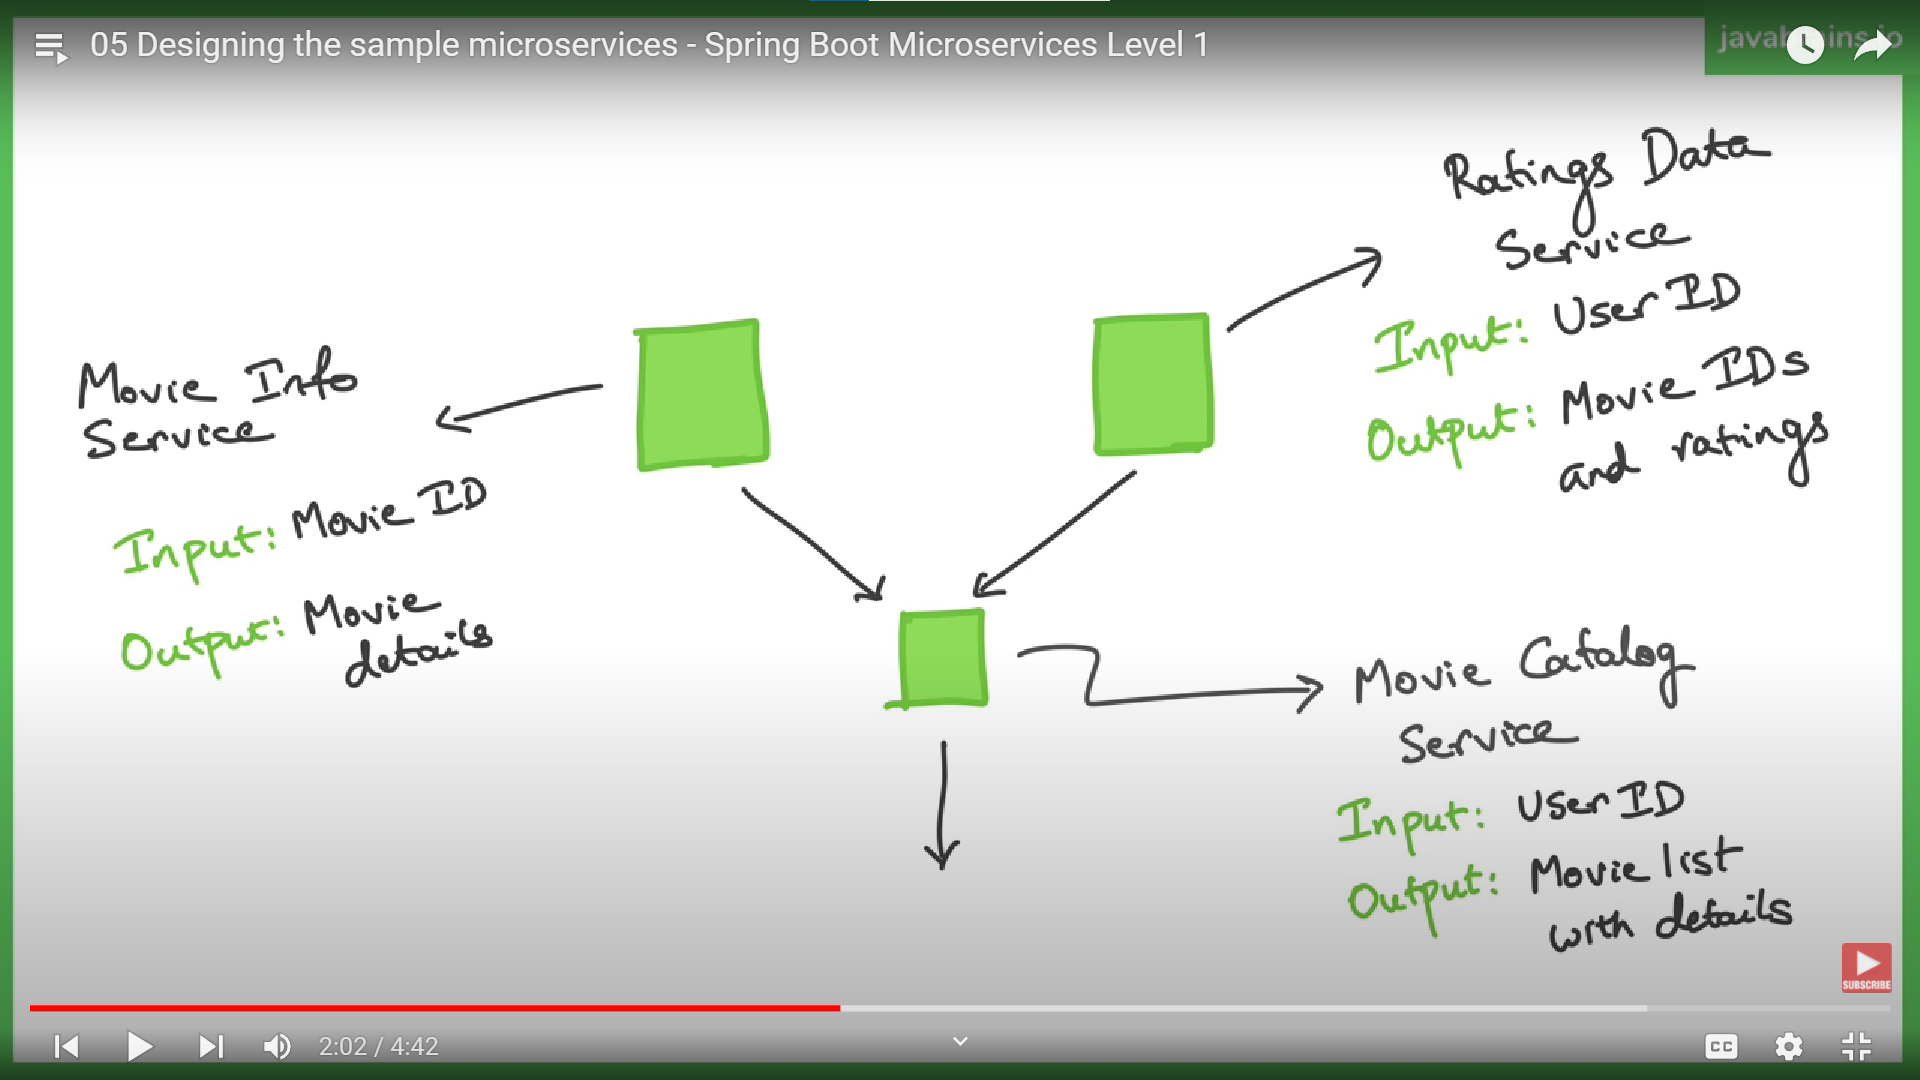 05 Designing the sample microservices - Spring Boot Microservices Level 1
Ratings Data
Service
Input: User ID
Output: Movie IDs
and ratings
Movie Info
Service
Input: Movie ID
Output: Movie
details
Movie Catalog
Service
Input: User ID
Output: Movie list
with details
SUBSCRIBE
2:02 / 4:42
CC